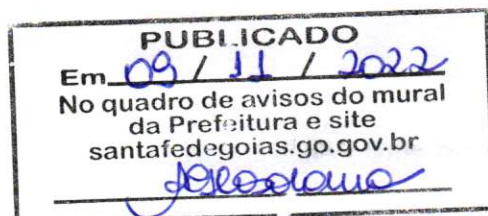 PUBLICADO
Em 09 / 11 / 2022
No quadro de avisos do mural
da Prefeitura e site
santafedegoias.go.gov.br